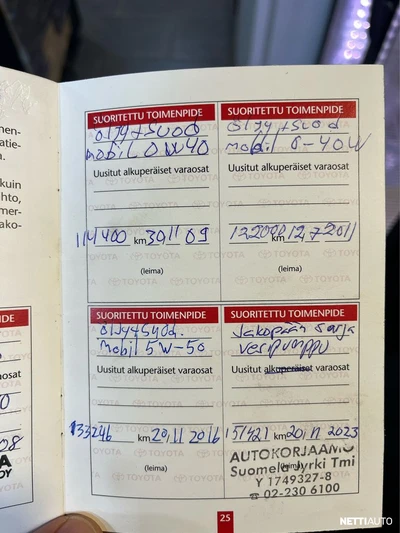 nen-
atie-
n.
kuin
hto,
mer-
ako-
PIDE
osat
08
A
OY
SUORITETTU TOIMENPIDE
öljy + suod
mobil 0W40
Uusitut alkuperäiset varaosat
114400 km 30 11 09
(leima)
SUORITETTU TOIMENPIDE
öljy + suod
mobil 0-40W
Uusitut alkuperäiset varaosat
km 12,7 2011
(leima)
SUORITETTU TOIMENPIDE
öljy + suod.
mobil 5W-50
Uusitut alkuperäiset varaosat
133246 km 20,11 2016
(leima)
SUORITETTU TOIMENPIDE
Jakopään sarja
vesipumppu
Uusitut alkuperäiset varaosat
151421 km 20,11 2023
(leima)
AUTOKORJAAMO
Suomela Jyrki Tmi
Y 1749327-8
☎ 02-230 6100
25
NETTIAUTO